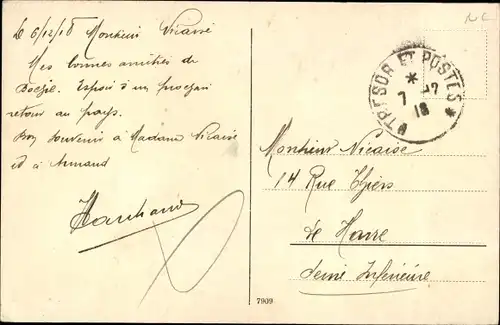 Le 6/12/18 Monsieur Nicaise
Mes bonnes amitiés de
Espoir d'un prochain
retour au pays.
Bon souvenir à Madame Nicaise
et à Armand
TRESOR ET POSTES
7 12
18
Monsieur Nicaise
14 Rue Thiers
Le Havre
Seine Inférieure
7909